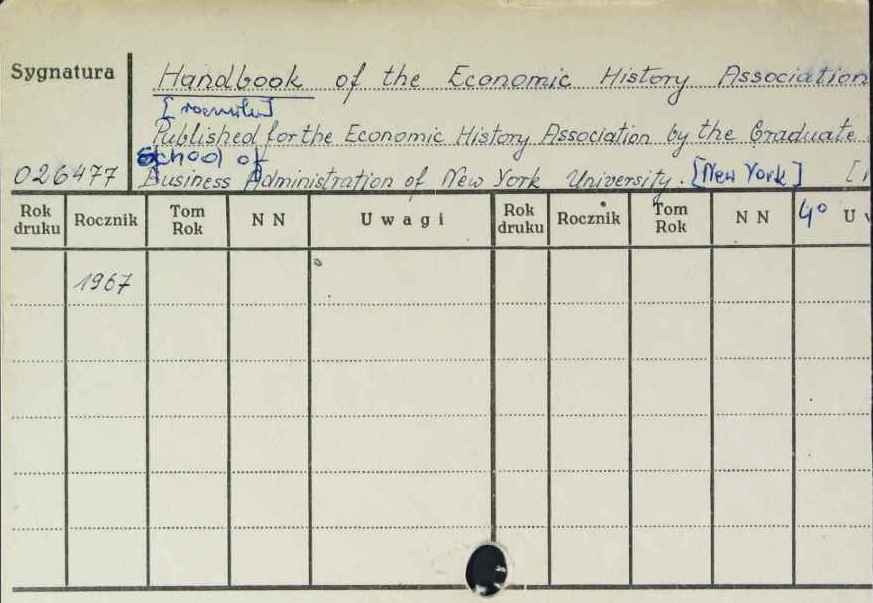 Sygnatura
Handbook of the Economic History Association
Published for the Economic History Association by the Graduate
School of
026477 Business Administration of New York University. [New York] [
Rok druku Rocznik Tom Rok N N U w a g i Rok druku Rocznik Tom Rok N N 4° U
1967